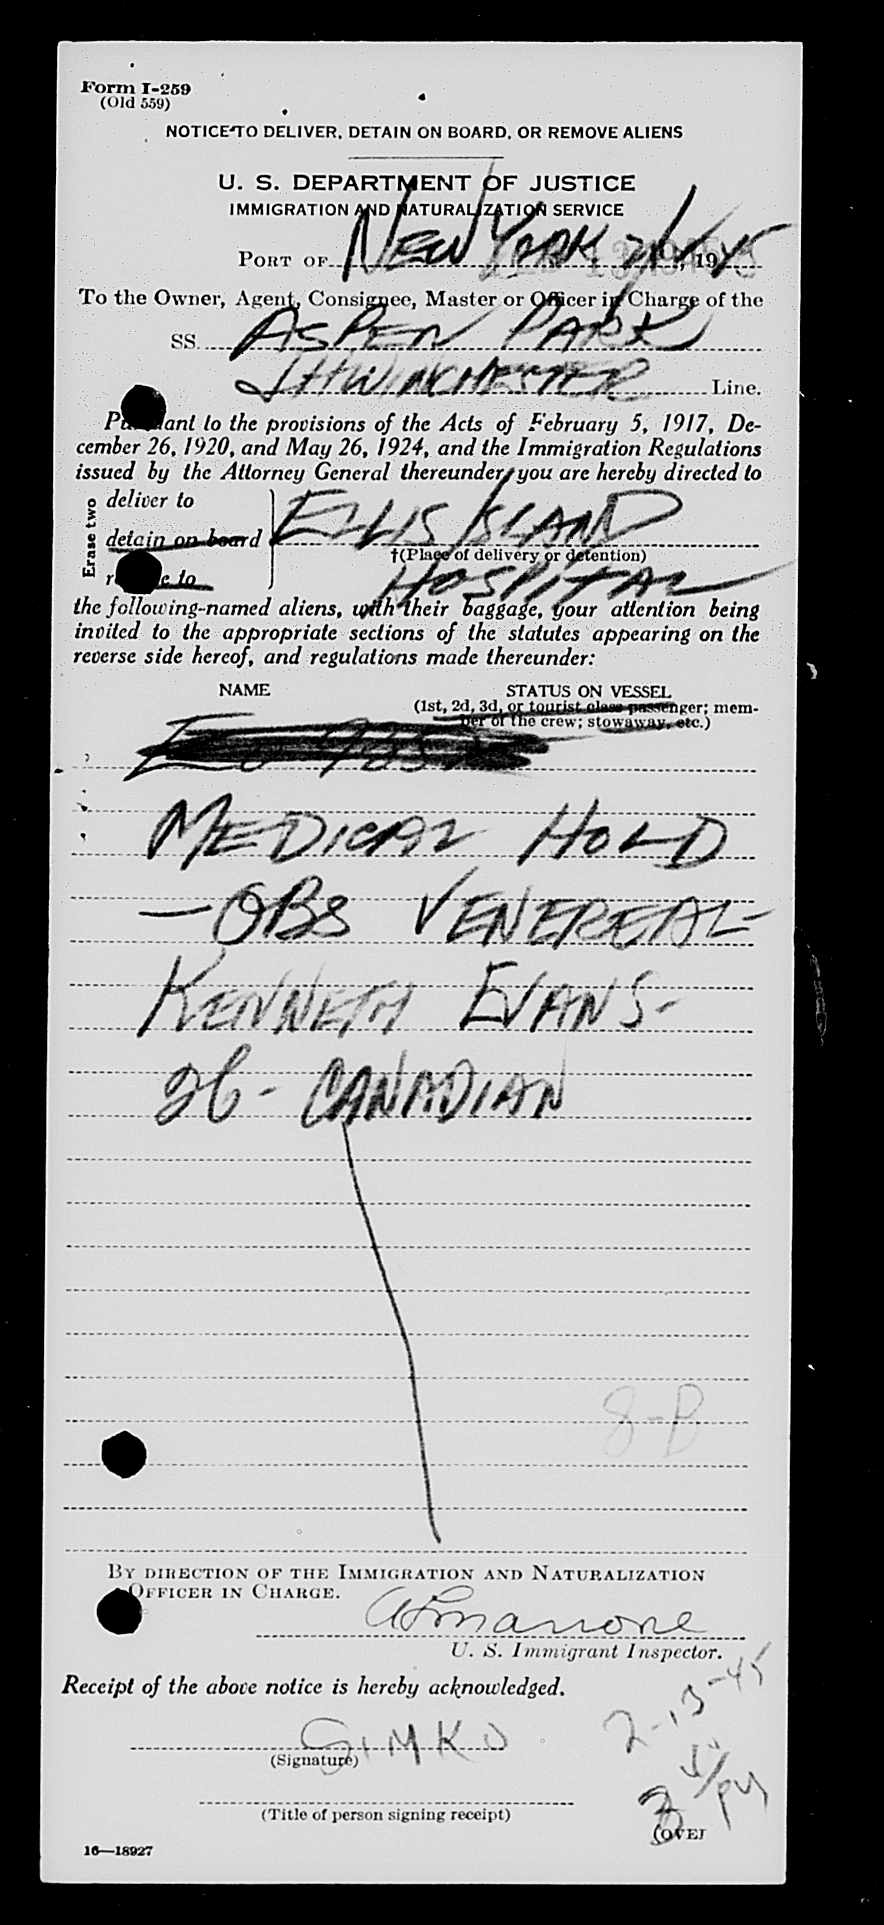 Form I-259
(Old 559)
NOTICE TO DELIVER, DETAIN ON BOARD, OR REMOVE ALIENS
U. S. DEPARTMENT OF JUSTICE
IMMIGRATION AND NATURALIZATION SERVICE
PORT OF NEW YORK, 19 45
To the Owner, Agent, Consignee, Master or Officer in Charge of the
SS. ASPEN PARK
J H WINCHESTER Line.
Pursuant to the provisions of the Acts of February 5, 1917, De-
cember 26, 1920, and May 26, 1924, and the Immigration Regulations
issued by the Attorney General thereunder, you are hereby directed to
Erase two
deliver to
detain on board ELLIS ISLAND
†(Place of delivery or detention)
remove to HOSPITAL
the following-named aliens, with their baggage, your attention being
invited to the appropriate sections of the statutes appearing on the
reverse side hereof, and regulations made thereunder:
NAME STATUS ON VESSEL
(1st, 2d, 3d, or tourist class passenger; mem-
ber of the crew; stowaway, etc.)
MEDICAL HOLD
— OBS VENEREAL -
KENNETH EVANS -
26 - CANADIAN
8-B
BY DIRECTION OF THE IMMIGRATION AND NATURALIZATION
OFFICER IN CHARGE.
U. S. Immigrant Inspector.
Receipt of the above notice is hereby acknowledged.
2-13-45
GIMKO
(Signature)
(Title of person signing receipt)
(OVER
16—18927